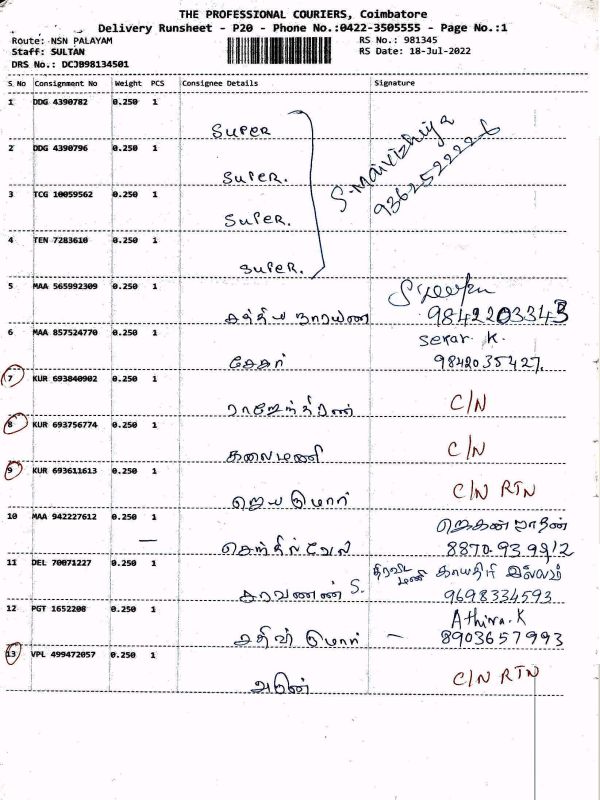 THE PROFESSIONAL COURIERS, Coimbatore
Delivery Runsheet - P20 - Phone No.:0422-3505555 - Page No.:1
Route: NSN PALAYAM
RS No.: 981345
Staff: SULTAN
RS Date: 18-Jul-2022
DRS No.: DCJB98134501
S.No Consignment No Weight PCS Consignee Details Signature
1 DDG 4390782 0.250 1
SUPER
S. Maivizhiya
9362522226
2 DDG 4390796 0.250 1
SUPER.
3 TCG 10059562 0.250 1
SUPER.
4 TEN 7283610 0.250 1
SUPER.
5 MAA 565992309 0.250 1
சத்திய நாராயண 9842203343
6 MAA 857524770 0.250 1 Sekar K.
சேகர் 9842035427.
7 KUR 693840902 0.250 1
ராஜேந்திரன் C/N
8 KUR 693756774 0.250 1
கலைமணி C/N
9 KUR 693611613 0.250 1
ஜெயகுமார் C/N RTN
10 MAA 942227612 0.250 1
செந்தில்வேல் 8870939912
11 DEL 70071227 0.250 1 காயதிரி இல்லம்
சரவணன் S. 9698334593
12 PGT 1652208 0.250 1 Athira.K
குமார் – 8903657993
13 VPL 499472057 0.250 1
C/N RTN